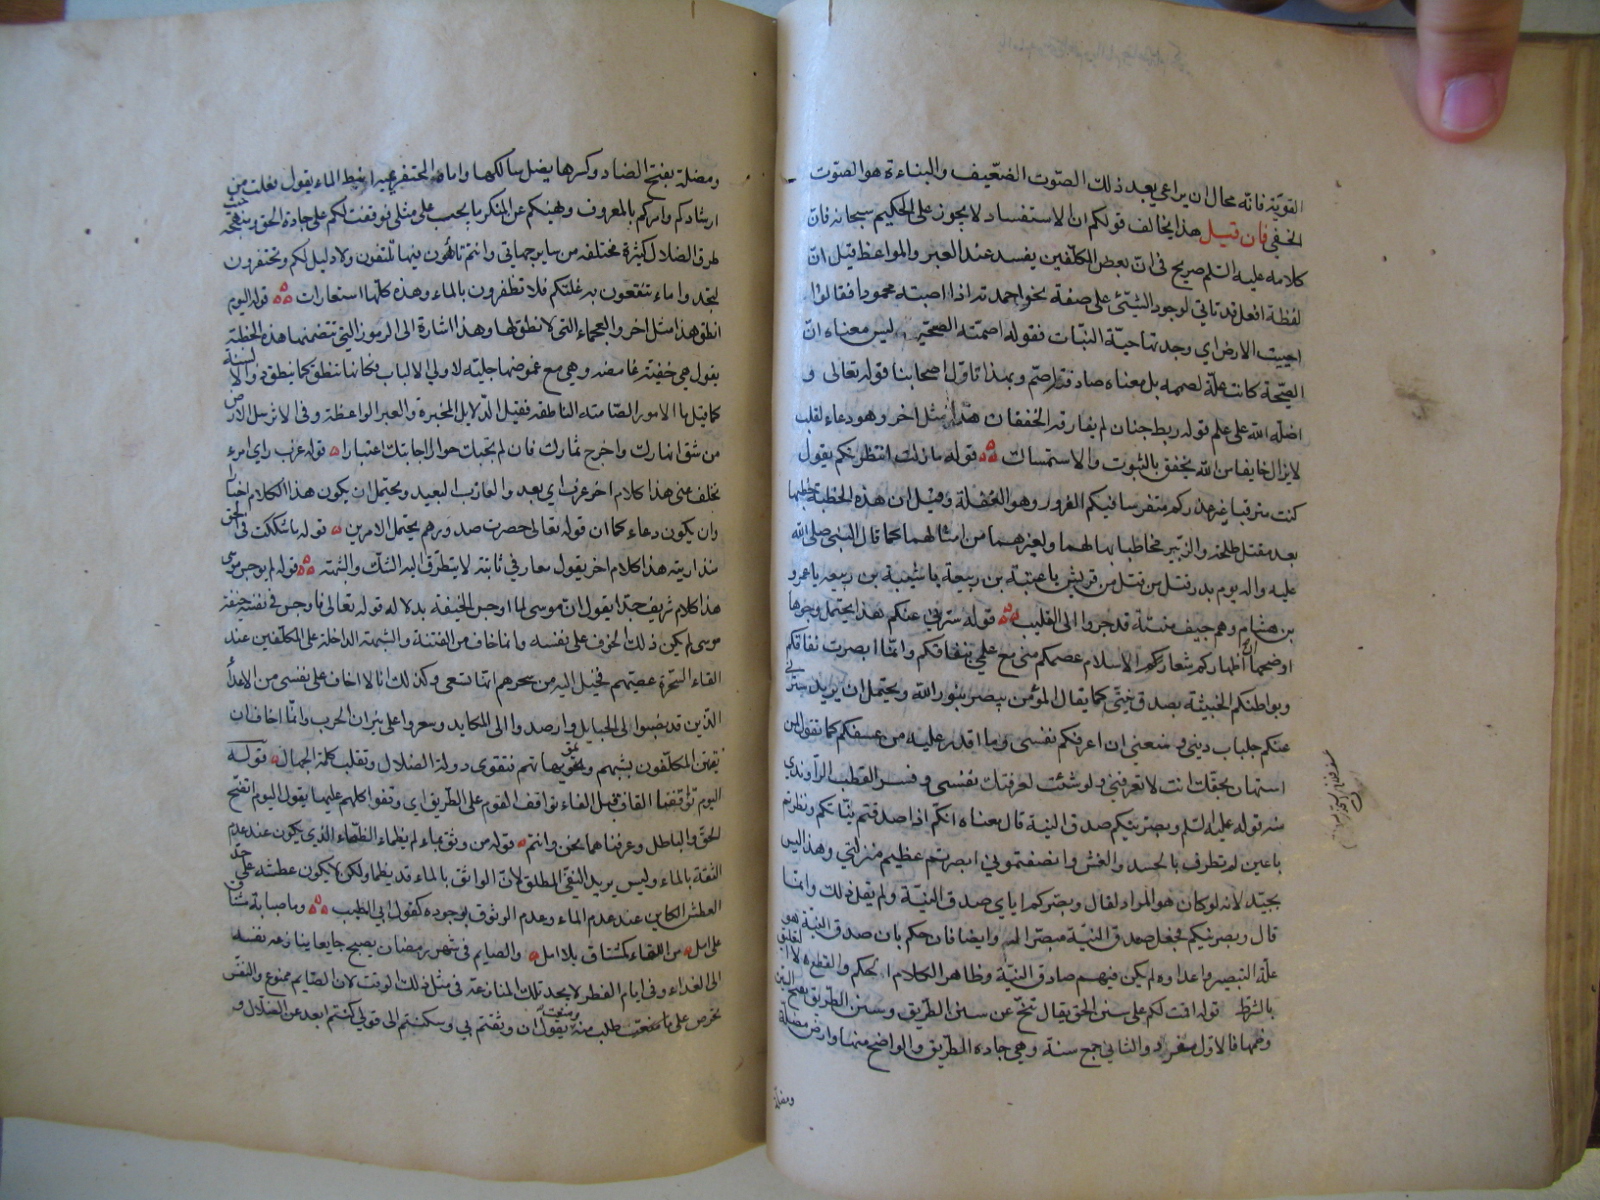 القوية فانه محال ان يراعي بعد ذلك الصوت الضعيف والنباءة هو الصوت
الخفي فان قيل هذا يخالف قولكم ان الاستفساد لا يجوز على الحكيم سبحانه فان
كلامه عليه السلم صريح في ان بعض المكلفين يفسد عند العبر والمواعظ قيل ان
لفظة افعل قد تاتي لوجود الشئ على صفة نحو احمدته اذا اصبته محمودا فقالوا
احييت الارض اي وجدتها حية النبات فقوله اصمته الصيحة ليس معناه ان
الصيحة كانت علة لصممه بل معناه صادفته اصم وبهذا تاول اصحابنا قوله تعالى و
اضله الله على علم قوله ربط جنان لم يفارقه الخفقان هذا مثل اخر وهو دعاء لقلب
لا يزال خايفا من الله يخفق بالثبوت والاستمساك قوله مازلت انتظر بكم يقول
كنت مترقبا غدركم متفرسا فيكم الغرور وهو الغفلة وقيل ان هذه الخطبة خطبها
بعد مقتل طلحة والزبير مخاطبا بها لهما ولغيرهما من امثالهما كما قال النبي صلى الله
عليه واله يوم بدر قتل من قتل من قريش يا عتبة بن ربيعة يا شيبة بن ربيعة يا عمرو
بن هشام وهم جيف منتنة قد جروا الى القليب قوله سترني عنكم هذا يحتمل وجوها
اوضحها ان اظهاركم شعار الاسلام عصمكم مني مع علمي بنفاقكم وانما ابصرت نفاقكم
وبواطنكم الخبيثة بصدق نيتي كما يقال المؤمن يبصر بنور الله ويحتمل ان يريد سترني
عنكم جلباب ديني ومنعني ان اعرفكم نفسي وما اقدر عليه من عسفكم كما تقول لمن
استهان بحقك انت لا تعرفني ولو شئت لعرفتك نفسي وفسر القطب الراوندي
قوله عليه السلم وبصرنيكم صدق النية قال معناه انكم اذا صدقتم نياتكم ونظرتم
باعين لم تطرف بالحسد والغش وانصفتموني ابصرتم عظيم منزلتي وهذا ليس
بجيد لانه لو كان هو المراد لقال وبصركم اياي صدق النية ولم يقل ذلك وانما
قال وبصرنيكم فجعل صدق النية مبصرا له وايضا فان حكم بان صدق النية هو
علة التبصير واعداؤه لم يكن فيهم صادق النية وظاهر الكلام الحكم والقطع لا التعليق
بالشرط قوله اقمت لكم على سنن الحق يقال تنح عن سنن الطريق وسنن الطريق بفتح السين
وضمها فالاول مفرد والثاني جمع سنة وهي جادة الطريق والواضح منها وارض مضلة
ومضلة
ومضلة بفتح الضاد وكسرها يضل سالكها واماه المحتفر يميه انبط الماء يقول فعلت من
ارشادكم وامركم بالمعروف ونهيكم عن المنكر ما يجب على مثلي فوقفت لكم على جادة الحق ومنهجه حيث
طرق الضلال كثيرة مختلفة من ساير جهاتي وانتم تائهون فيها تلتقون ولا دليل لكم وتحتفرون
لتجدوا ماء تنقعون به غلتكم فلا تظفرون بالماء وهذه كلها استعارات قوله اليوم
انطق هذا مثل اخر والعجماء التي لا نطق لها وهذا اشارة الى الرموز التي تتضمنها هذه الخطبة
يقول هي خفية غامضة وهي مع غموضها جلية لاولي الالباب فكانها تنطق كما ينطق ذوالالسنة
كما قيل ما الامور الصامتة الناطقة فقيل الدلايل المخبرة والعبر الواعظة وفي الاثر سل الارض
من شق انهارك واخرج ثمارك فان لم تجبك حوارا اجابتك اعتبارا قوله عزب راي امرء
تخلف عني هذا كلام اخر عزب اي بعد والعازب البعيد ويحتمل ان يكون هذا الكلام اخبارا
وان يكون دعاء كما ان قوله تعالى حصرت صدورهم يحتمل الامرين قوله ما شككت في الحق
مذ اريته هذا كلام اخر يقول معارفي ثابتة لا يتطرق اليها الشك والشبهة قوله لم يوجس موسى
هذا كلام شريف جدا يقول ان موسى لما اوجس الخيفة بدلالة قوله تعالى فاوجس في نفسه خيفة
موسى لم يكن ذلك الخوف على نفسه وانما خاف من الفتنة والشبهة الداخلة على المكلفين عند
القاء السحرة عصيهم فخيل اليه من سحرهم انها تسعى وكذلك انا لا اخاف على نفسي من الاعداء
الذين قد نصبوا لي الحبايل وارصدوا لي المكايد وسعروا على نيران الحرب وانما اخاف ان
يفتتن المكلفون بشبههم وتمويهاتهم فتقوى دولة الضلال وتغلب كلمة الجهال قوله
اليوم توقفنا القاف قبل الفاء تواقف القوم على الطريق اي وقفوا كلهم عليها يقول اليوم اتضح
الحق والباطل وعرفناهما نحن وانتم قوله من وثق بماء لم يظماء الظماء الذي يكون عند عدم
الثقة بالماء وليس يريد النفي المطلق لان الواثق بالماء قد يظما ولكن لا يكون عطشه على حد
العطش الكاين عند عدم الماء وعدم الوثوق بوجوده كقول ابي الطيب وما صبابة مشتاق
على امل من اللقاء كمشتاق بلا امل والصايم في شهر رمضان يصبح جايعا ينازعه نفسه
الى الغذاء وفي ايام الفطر لا يجد تلك المنازعة في مثل ذلك الوقت لان الصايم ممنوع والنفس
تحرص على ما منعت طلب منه يقول ان وثقتم بي وسكنتم الى قولي كنتم ابعد عن الضلال و